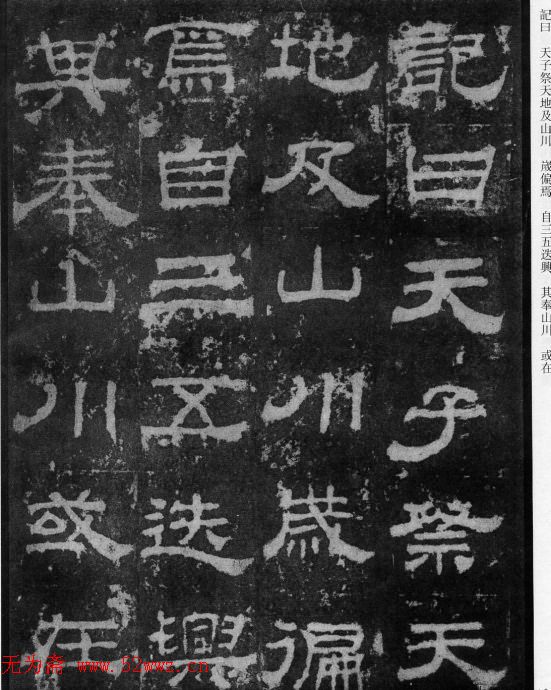 記曰天子祭天
地及山川歲徧
焉自三五迭興
其奉山川或在
記曰 天子祭天地及山川 歲徧焉 自三五迭興 其奉山川 或在
无为斋 www.52wwz.cn